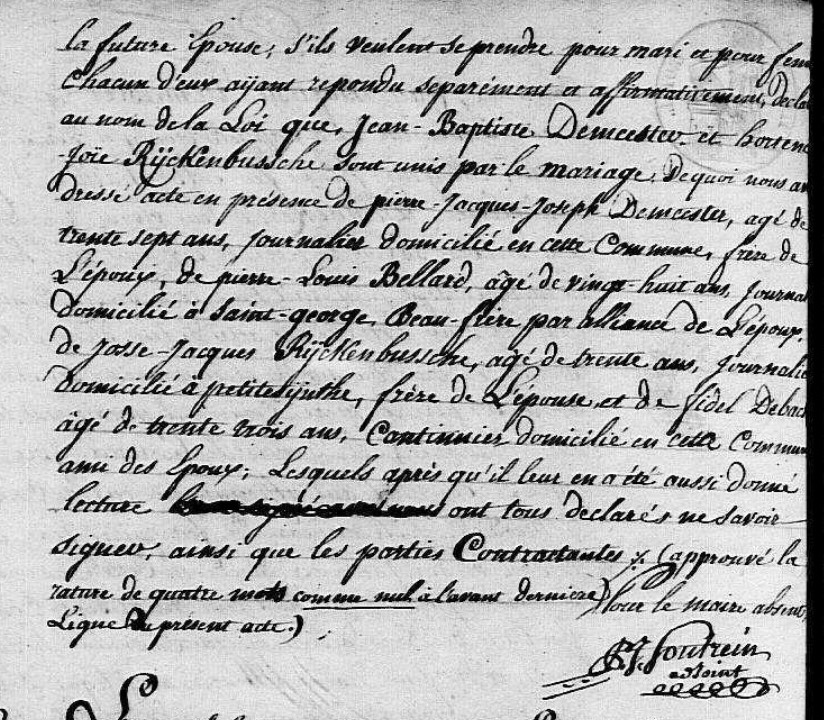 la future Epouse, s'ils veulent se prendre pour mari et pour fem
Chacun d'eux aÿant repondu separément et affirmativement, decla
au nom de la Loi que, Jean-Baptiste Demeester et horten
-Joïe Rÿckenbussche sont unis par le mariage. De quoi nous av
dressé acte en présence de pierre-Jacques-Joseph Demeester, agé de
trente sept ans, Journalier domicilié en cette Commune, frère de
L'époux, de pierre-Louis Bellard, âgé de vingt-huit ans, Journal
domicilié à Saint-george, Beau-frère par alliance de L'époux,
de Josse-Jacques Rÿckenbussche, agé de trente ans, Journalie
domicilié à petitesÿnthe, frère de L'épouse, et de fidel Debac
âgé de trente trois ans, Cantinnier domicilié en cette Commun
ami des Epoux; Lesquels après qu'il leur en a été aussi donné
lecture ont tous declarés ne savoir
signer, ainsi que les parties Contractantes ⁒ (approuvé la
rature de quatre mots comme nul à l'avant dernière)
Ligne du présent acte.) Pour le maire absent,
Soutrein
adjoint